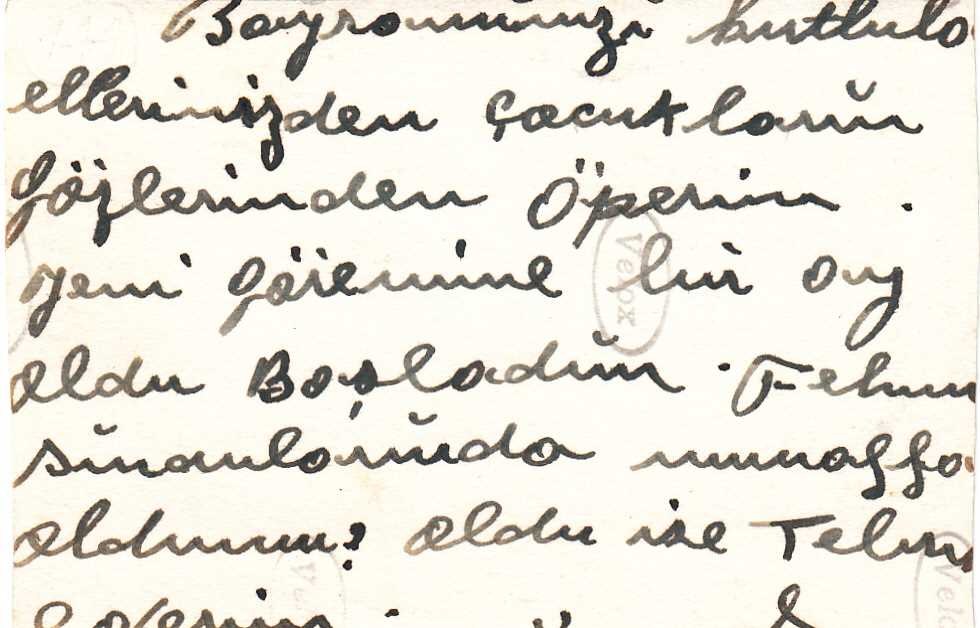 Bayramınızı kutlula
ellerinizden çocukların
gözlerinden Öperim .
yeni görevime bir ay
oldu Başladım . Fehm
sınavlarında muvaffa
oldumu? oldu ise Tebr
ederim .
Velox